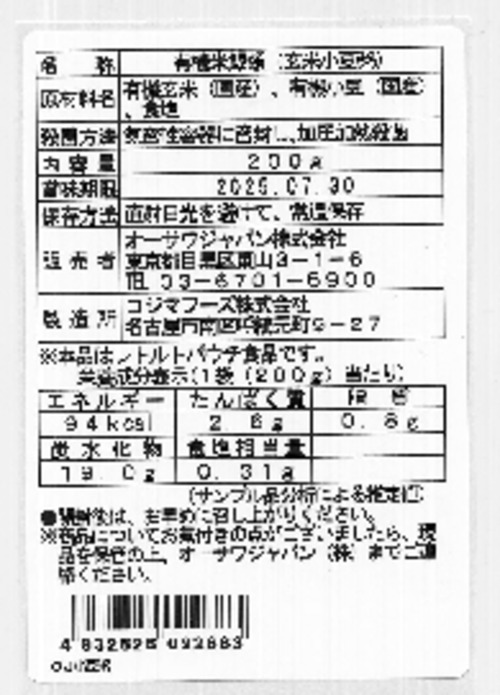 名 称 有機米穀類（玄米小豆粥）
原材料名 有機玄米（国産）、有機小豆（国産）
、食塩
殺菌方法 気密性容器に密封し、加圧加熱殺菌
内容量 200g
賞味期限 2025.07.30
保存方法 直射日光を避けて、常温保存
販売者 オーサワジャパン株式会社
東京都目黒区東山3-1-6
TEL 03-6701-5900
製造所 コジマフーズ株式会社
名古屋市南区呼続元町9-27
※本品はレトルトパウチ食品です。
栄養成分表示(1袋（200g）当たり)
エネルギー たんぱく質 脂質
94kcal 2.6g 0.8g
炭水化物 食塩相当量
19.0g 0.31g
(サンプル品分析による推定値)
●開封後は、お早めに召し上がりください。
※商品についてお気付きの点がございましたら、現
品を保管の上、オーサワジャパン（株）までご連
絡ください。